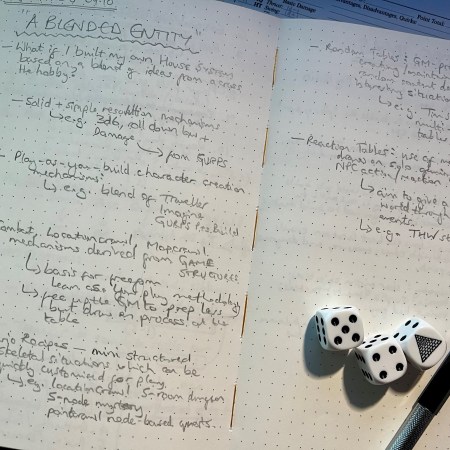 "A BLENDED ENTITY"
- What if I built my own House System
based on a blend of ideas from across
the hobby?
- Solid + simple resolution mechanisms
↳ e.g. 3d6, roll down but +
Damage
↳ from GURPS
- Play-as-you-build character creation
mechanisms:
↳ e.g. blend of Traveller
Imagine
GURPS Pre-Build
Combat, Locationcrawl, Mapcrawl
mechanisms derived from GAME
STRUCTURES
↳ basis for freeform
lean as you play methodology
↳ free up the GM to prep less
but draw on process at the
table
Recipes - mini structured
skeletal situations which can be
quickly customised for play.
↳ e.g. locationcrawl 5-room dungeon
5-node mystery
pointcrawl node-based quests.
Advantages, Disadvantages, Quirks
Point Total
Basic Damage
- Random Tables: GM-
random
situation
↳ e.g.
tables
- Reaction Tables: use of
NPC action/reaction
↳ aim to give a
world through
events.
↳ e.g. THW